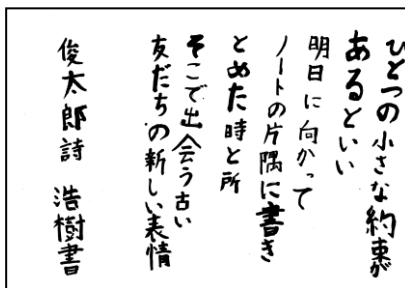 ひとつの小さな約束が
あるといい
明日に向かって
ノートの片隅に書き
とめた時と所
そこで出会う古い
友だちの新しい表情
俊太郎詩 浩樹書